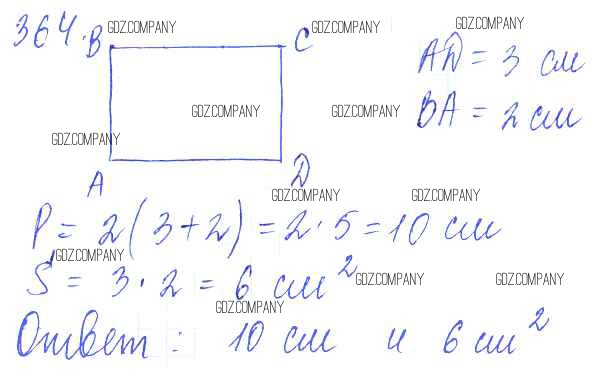 364.
B C
AD = 3 см
BA = 2 см
A D
P = 2(3+2) = 2·5 = 10 см
S = 3·2 = 6 см²
Ответ: 10 см и 6 см²
GDZ.COMPANY
GDZ.COMPANY
GDZ.COMPANY
GDZ.COMPANY
GDZ.COMPANY
GDZ.COMPANY
GDZ.COMPANY
GDZ.COMPANY
GDZ.COMPANY
GDZ.COMPANY
GDZ.COMPANY
GDZ.COMPANY